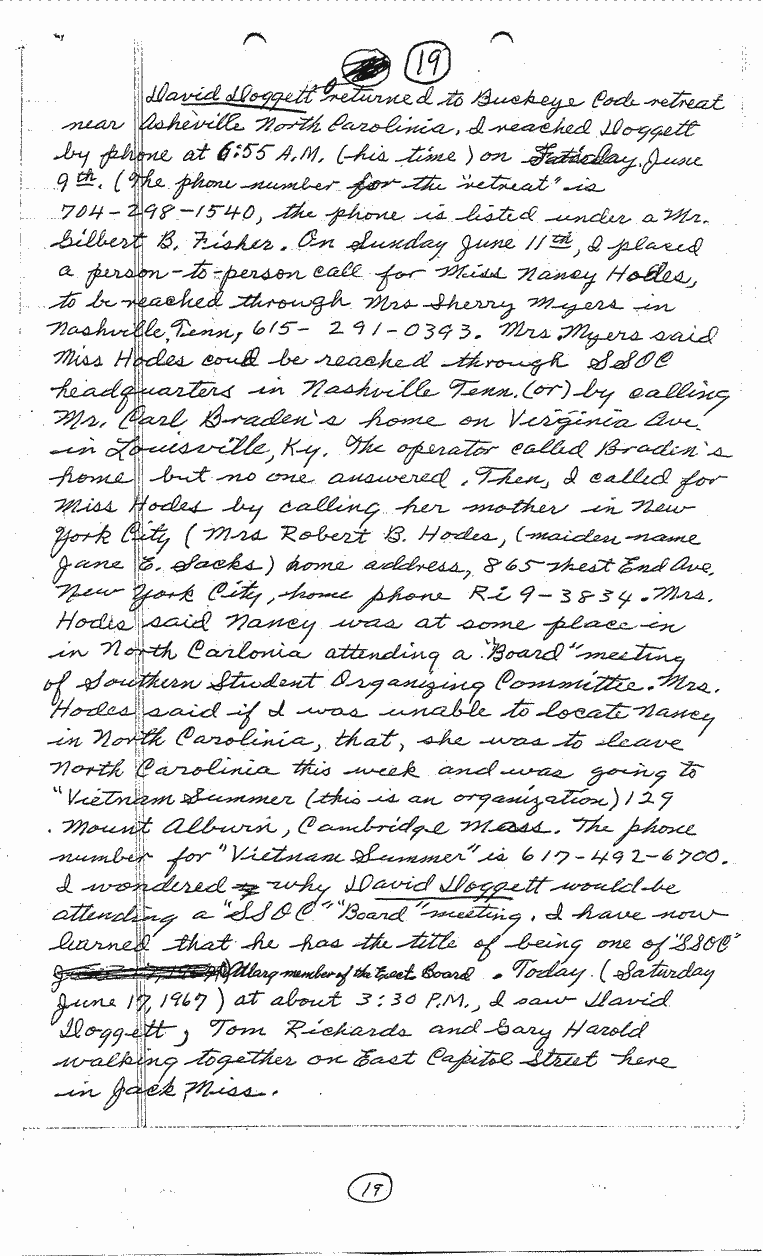 19
David Doggett returned to Buckeye Code retreat
near Asheville North Carolinia. I reached Doggett
by phone at 6:55 A.M. (his time) on Saturday, June
9th. (The phone number for the "retreat" is
704-298-1540, the phone is listed under a Mr.
Gilbert B. Fisher. On Sunday June 11th, I placed
a person-to-person call for Miss Nancy Hodes,
to be reached through Mrs Sherry Myers in
Nashville, Tenn, 615- 291-0393. Mrs. Myers said
Miss Hodes could be reached through SSOC
headquarters in Nashville Tenn. (or) by calling
Mr. Carl Braden's home on Virginia Ave.
in Louisville, Ky. The operator called Braden's
home but no one answered. Then, I called for
Miss Hodes by calling her mother in New
York City (Mrs Robert B. Hodes, (maiden name
Jane E. Sacks) home address, 865 West End Ave.
New York City, home phone Ri 9-3834. Mrs.
Hodes said Nancy was at some place in
in North Carlonia attending a "Board" meeting
of Southern Student Organizing Committie. Mrs.
Hodes said if I was unable to locate Nancy
in North Carolinia, that, she was to leave
North Carolinia this week and was going to
"Vietnam Summer (this is an organization) 129
Mount Alburn, Cambridge Mass. The phone
number for "Vietnam Summer" is 617-492-6700.
I wondered why David Doggett would be
attending a "SSOC" "Board" meeting. I have now
learned that he has the title of being one of "SSOC"
Atlarg member of the Exect. Board. Today (Saturday
June 17, 1967) at about 3:30 P.M., I saw David
Doggett, Tom Richards and Gary Harold
walking together on East Capitol Street here
in Jack, Miss.
19